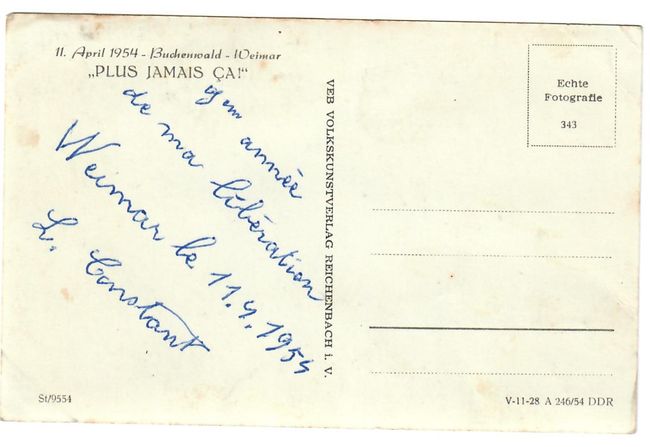 11. April 1954 - Buchenwald - Weimar
„PLUS JAMAIS ÇA!“
9em année
de ma libération
Weimar le 11.4.1954
L. Constant
VEB VOLKSKUNSTVERLAG REICHENBACH i. V.
Echte
Fotografie
343
St/9554
V-11-28 A 246/54 DDR